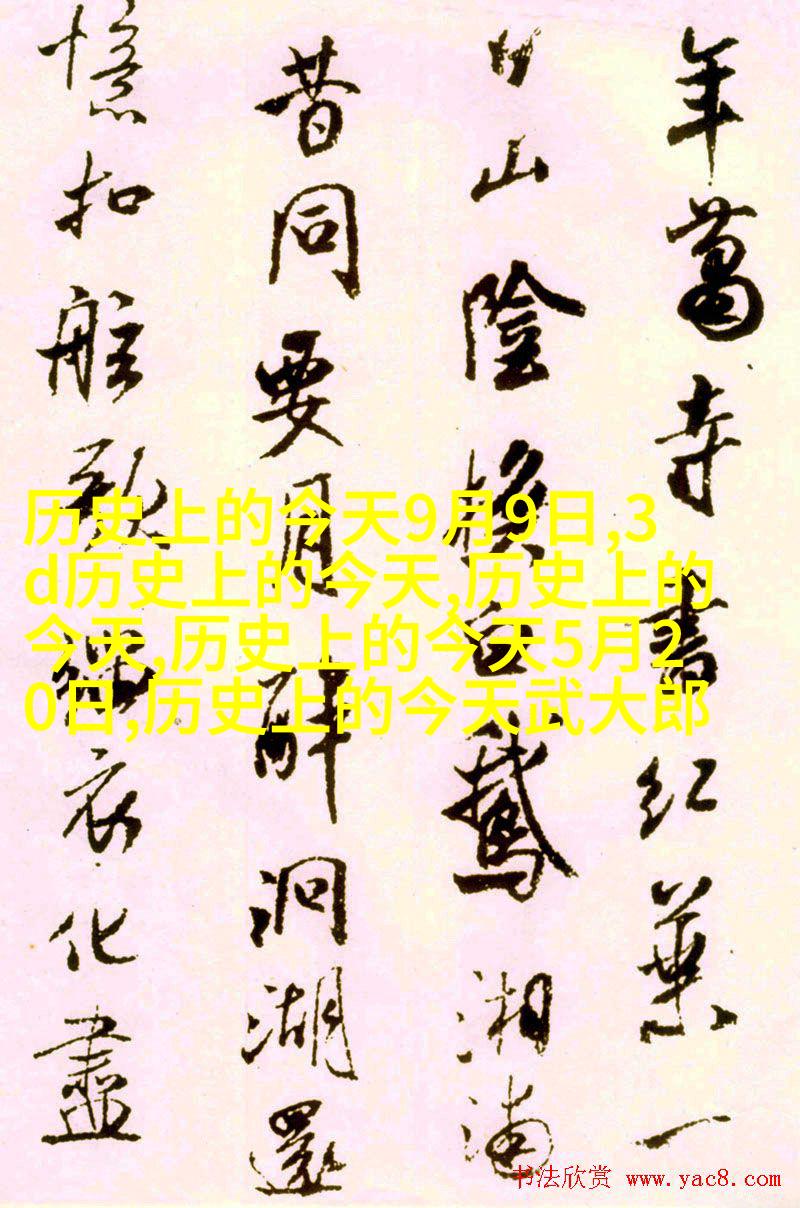 年蕭寺書紅葉一
日山陰換白鵝湘浦
昔同要月醉洞湖還
憶扣舷歌緇衣化盡
历史上的今天9月9日,3
d历史上的今天,历史上的
今天,历史上的今天5月2
0日,历史上的今天武大郎
书法欣赏 www.yac8.com